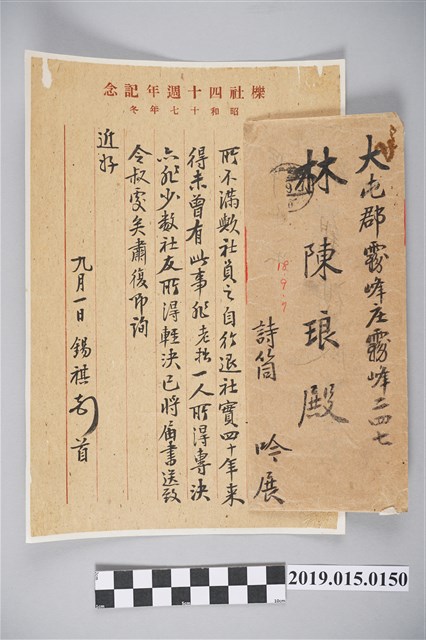 櫟社四十週年記念
昭和十七年冬
大屯郡霧峰庄霧峰二四七
林陳琅殿
詩筒 吟展
18.9.9
所不滿歟社員之自行退社實四十年來
得未曾有此事非老拙一人所得專決
亦非少數社友所得輕決已將届書送致
令叔處矣肅復即詢
近好
九月一日 錫祺 首
2019.015.0150